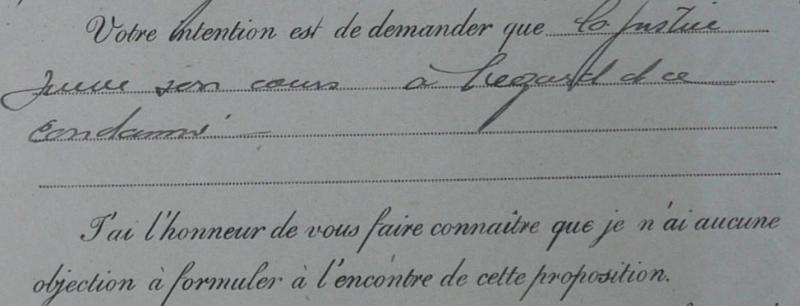 Votre intention est de demander que la justice
suive son cours à l'égard de ce
condamné
J'ai l'honneur de vous faire connaître que je n'ai aucune
objection à formuler à l'encontre de cette proposition.